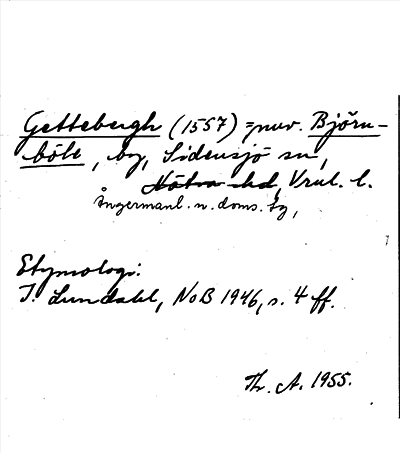 Gettebergh (1557) = nuv. Björn-
böle, by, Sidensjö sn,
Nätra hd, Vnrl. l.
Ångermanl. n. doms. tg,
Etymologi:
I. Lundahl, NoB 1946, s. 4 ff.
Th. A. 1955.